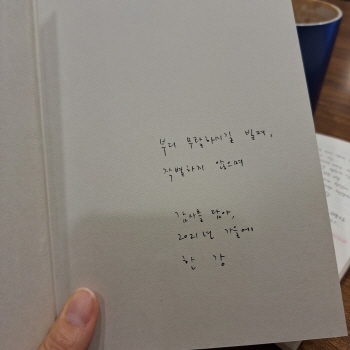 부디 무탈하시길 빌며,
작별하지 않으며
감사를 담아,
2021년 가을에
한 강